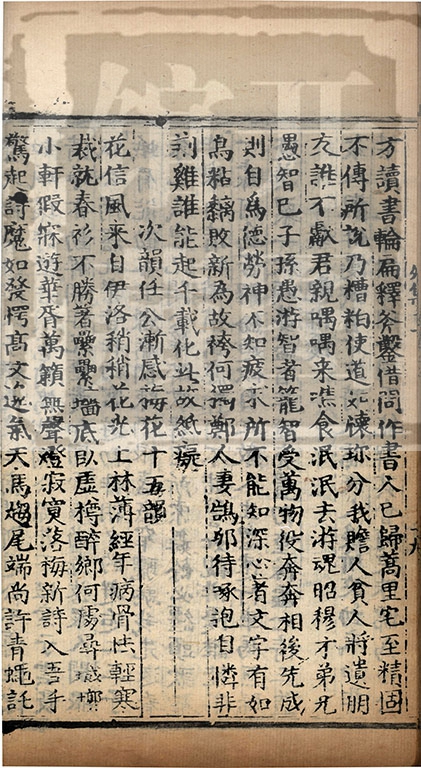 方讀書輪扁釋斧鑿借問作書人已歸蒿里宅至精固
不傳所說乃糟粕使道如懷珎分我贍人貧人將遺朋
友誰不獻君親喁喁来噍食泯泯去游魂昭穆才弟兄
愚智已子孫愚游智者籠智受萬物役奔奔相後先成
則自為德勞神不知疲求所不能知深心著文字有如
鳥粘黐敗新為故袴何獨鄭人妻鵠卵待啄抱自憐非
荆雞誰能起千載化此故紙癡
次韻任公漸感梅花十五韻
花信風来自伊洛稍稍花光上林薄經年病骨怯輕寒
裁就春衫不勝著纍纍墻底臥虛樽醉鄉何處尋城郭
小軒假寐遊華胥萬籟無聲燈寂寞落梅新詩入吾手
驚起詩魔如發愕髙文逸氣天馬趨尾端尚許青蠅託